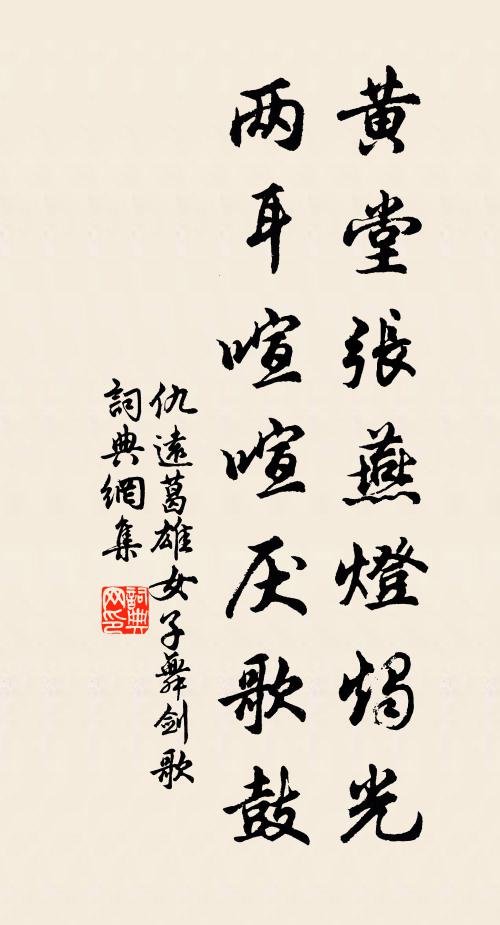 黄堂張燕燈燭光
两耳喧喧厌歌鼓
仇遠葛雄女子舞剑歌
詞典網集
詞典
网印